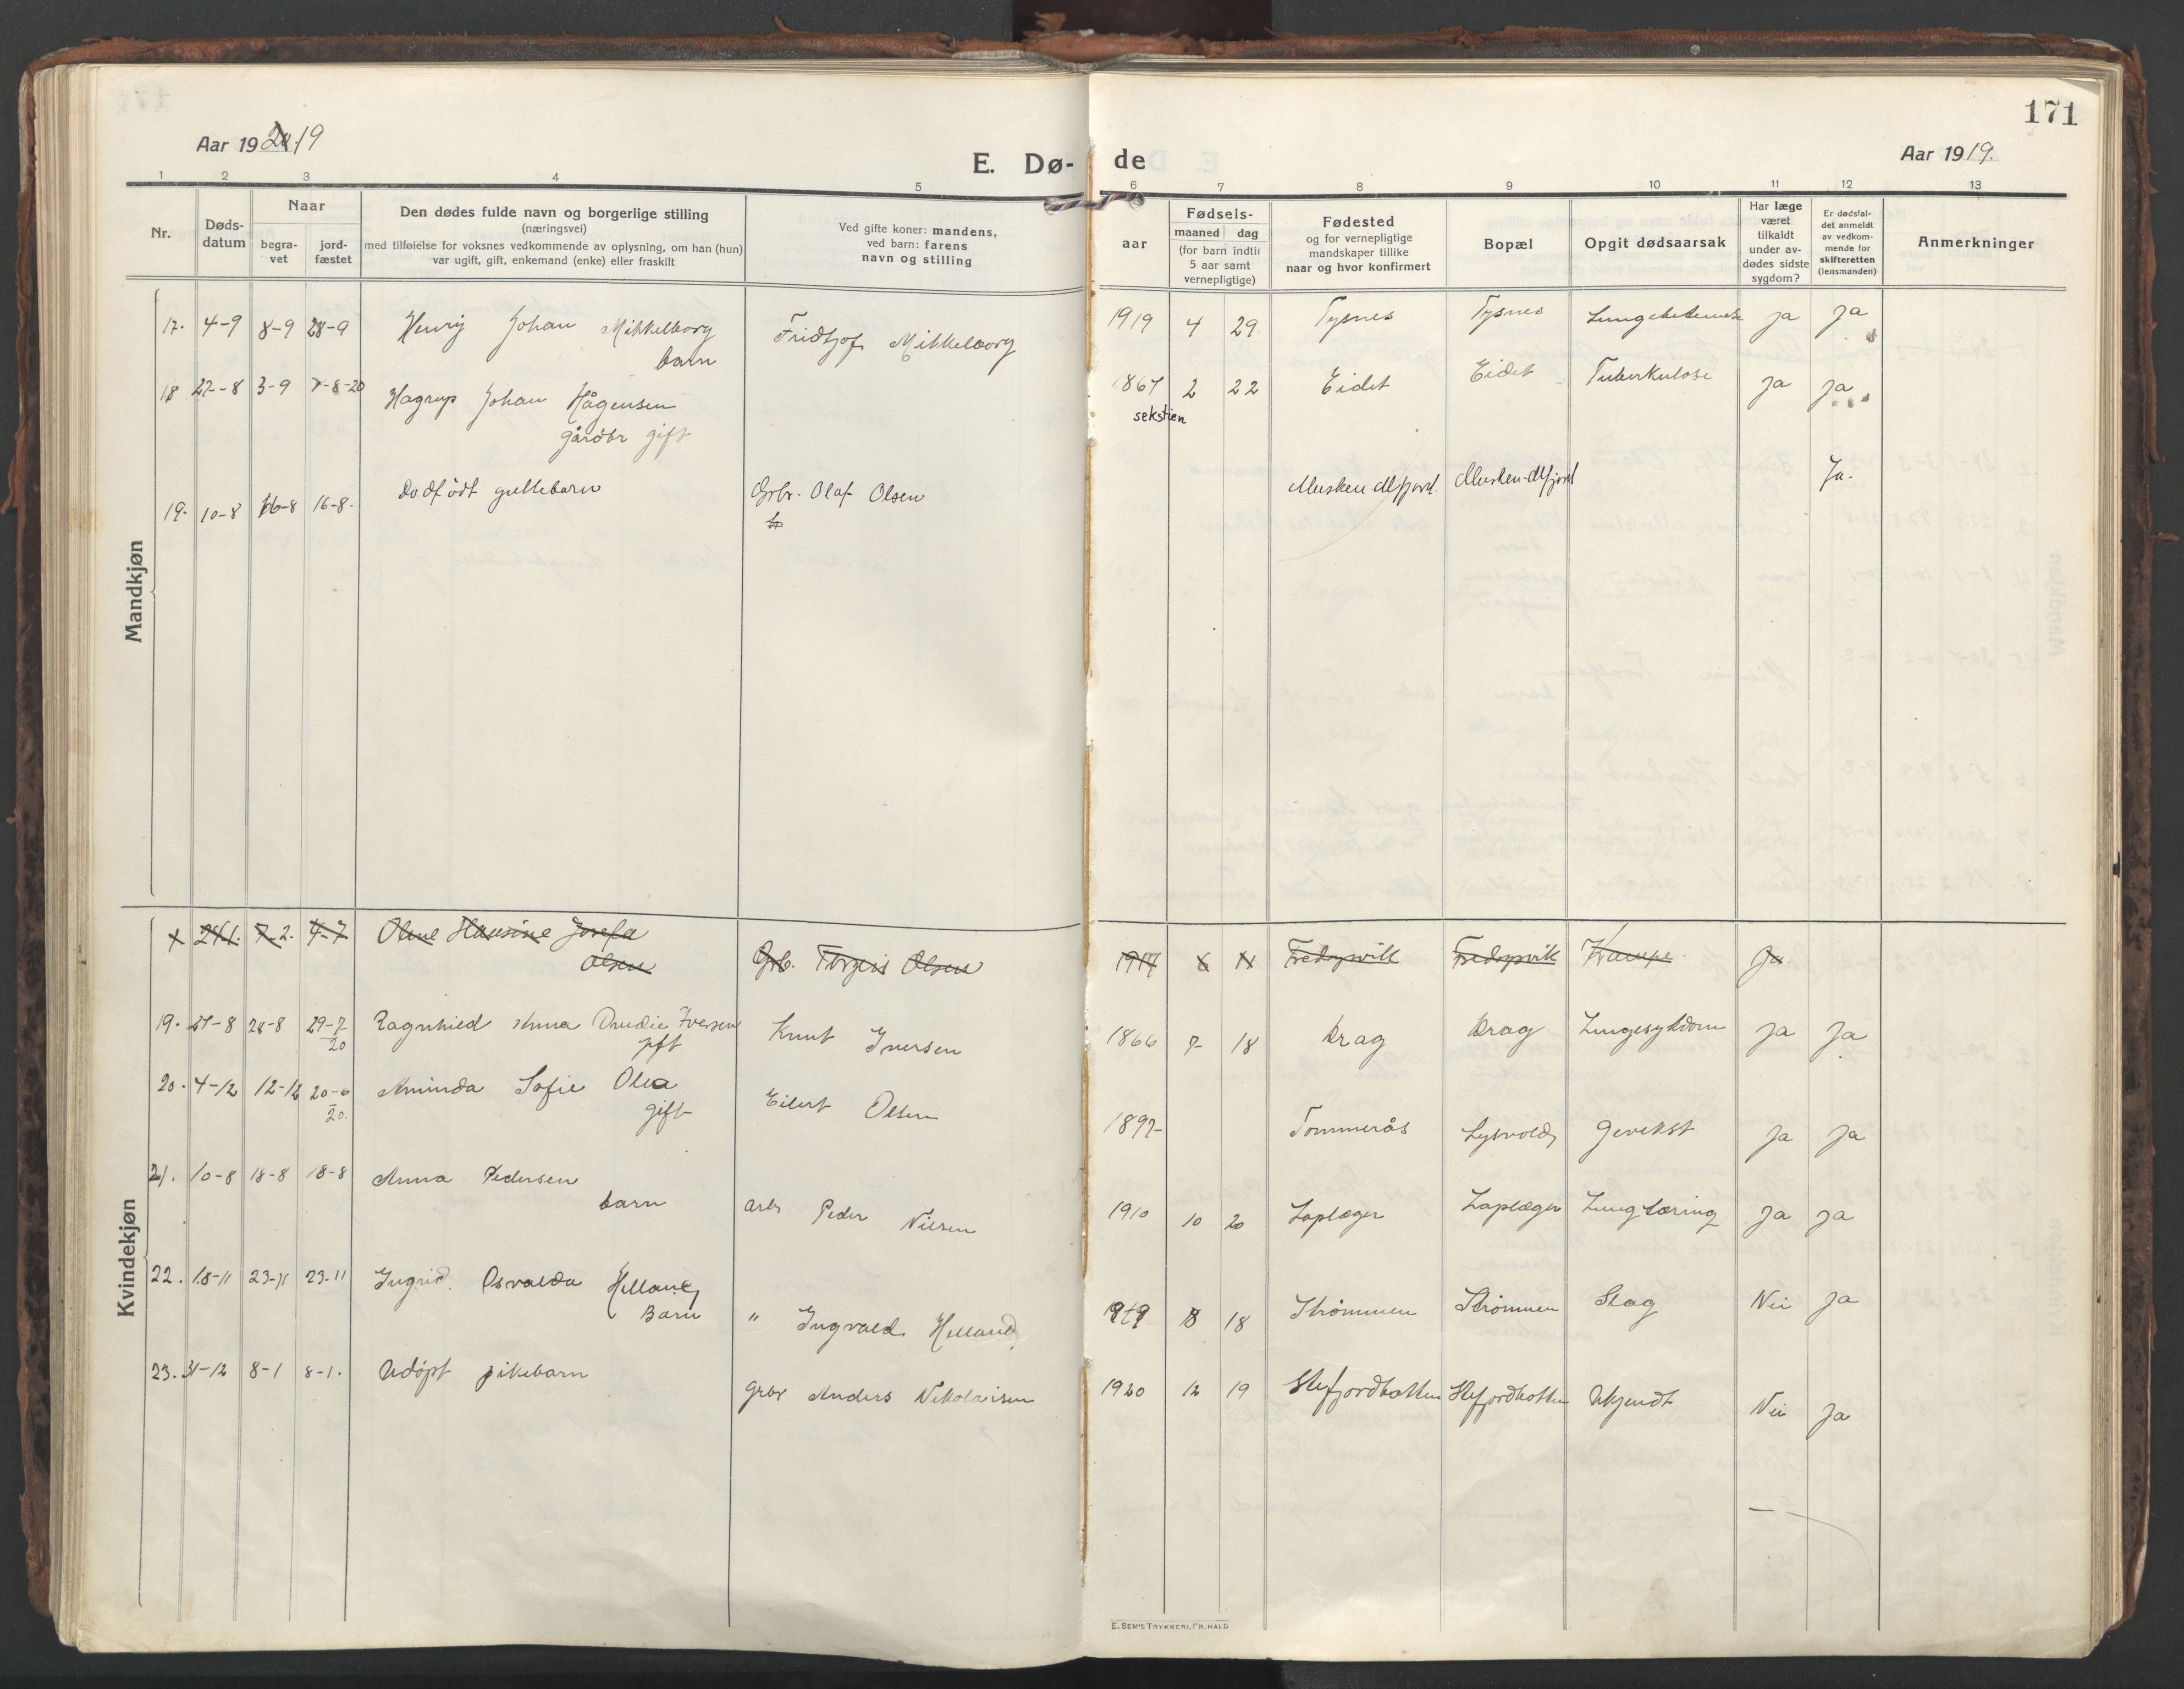 171
Aar 1920.19
E. Dø- de
Aar 1919.
1 2 3 4 5 6 7 8 9 10 11 12 13
Nr.
Døds-
datum
Naar
begra-
vet
jord-
fæstet
Den dødes fulde navn og borgerlige stilling
(næringsvei)
med tilføielse for voksnes vedkommende av oplysning, om han (hun)
var ugift, gift, enkemand (enke) eller fraskilt
Ved gifte koner: mandens,
ved barn: farens
navn og stilling
aar
Fødsels-
maaned dag
(for barn indtil
5 aar samt
vernepligtige)
Fødested
og for vernepligtige
mandskaper tillike
naar og hvor konfirmert
Bopæl
Opgit dødsaarsak
Har læge
været
tilkaldt
under av-
dødes sidste
sygdom?
Er dødsfal-
det anmeldt
av vedkom-
mende for
skifteretten
(lensmanden)
Anmerkninger
Mandkjøn
17. 4-9 8-9 28-9 Henrij Johan Mikkelborg Fridtjof Mikkelborg 1919 4 29 Tysnes Tysnes Lungebetennelse Ja Ja
barn
18 27-8 3-9 7-8-20 Hagrup Johan Hågensen 1867 2 22 Eidet Eidet Tuberkulose Ja Ja
sekstien
gårdbr gift
19. 10-8 16-8 16-8. Dødfødt guttebarn Grbr. Olaf Olsen Musken Mfjord. Musken Mfjord Ja.
Kvindekjøn
24-1. 7-2. 4-7 Oline Hansine Josefa
Olsen Grb. Torgeis Olsen 1917 6 11 Fredsvik Fredsvik Krampe. Ja
19. 27-8 28-8 29-7 Ragnhild Anna Drudie Iversen Knut Iversen 1866 7- 18 Drag Drag Lungesykdom Ja Ja
20 gift
20. 4-12 12-12 20-6 Aminda Sofie Olea Eilert Olsen 1892- Tommerås Lysvold Gevekst Ja Ja
20. gift
21. 10-8 18-8 18-8 Anna Pedersen
barn arb Peder Nilsen 1910 10 20 Laplæger Laplæger Lungtæring Ja Ja
22. 18-11 23-11 23-11 Ingrid. Osvalda Helland,
Barn " Ingvald Helland, 1919 8 18 Strömmen Strömmen Slag Nei Ja
23. 31-12 8-1 8-1. Udöpt pikebarn grbr Anders Nikolaisen 1920 12 19 Stefjordbotten Stefjordbotten Ukjendt Nei Ja
E. Sem's Trykkeri, Fr.hald